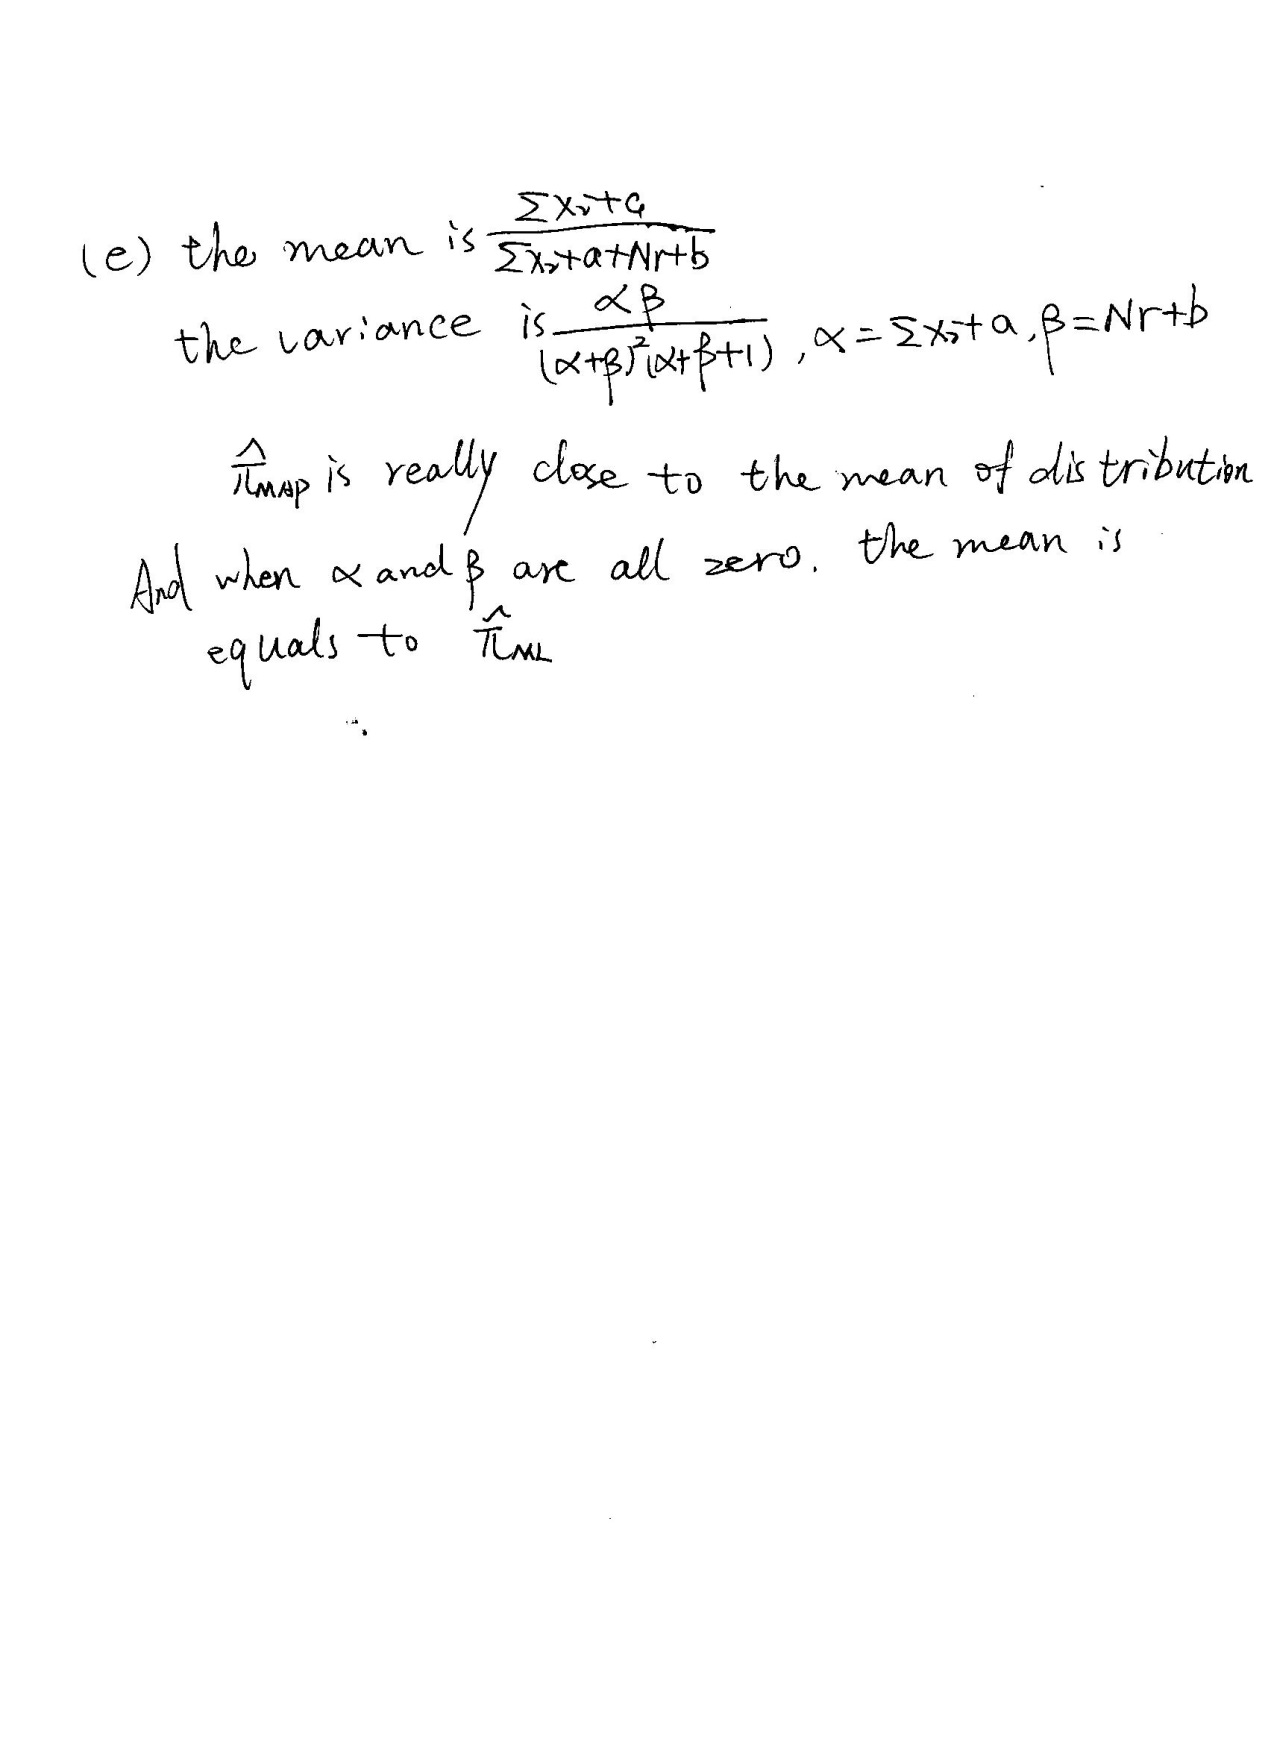 (e) the mean is (Σxᵢ+a)/(Σxᵢ+a+Nr+b)
the variance is αβ/((α+β)²(α+β+1)), α=Σxᵢ+a, β=Nr+b
π̂MAP is really close to the mean of distribution
And when α and β are all zero. the mean is
equals to π̂ML